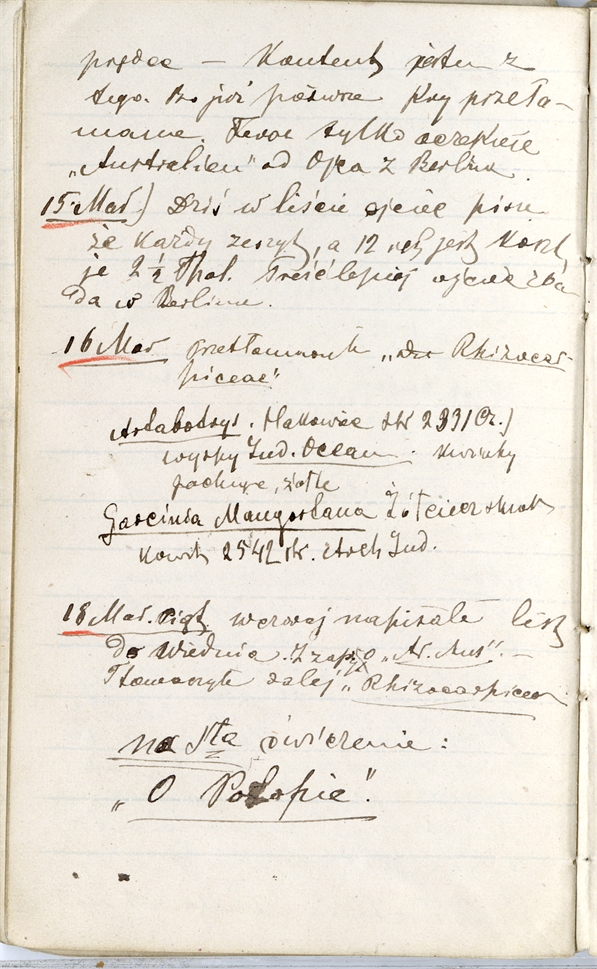 prędce — Kontent jestem z
tego. Bo już pierwsze przeła-
mane. Teraz tylko oczekuję
„Australien" od Ojca z Berlina.
15. Mar.) Dziś w liście ojciec pisze
że Każdy zeszyt, a 12 jest Koszt
je 2 1/2 Thal. Treść lepiej ojciec zba-
da w Berlinie.
16 Mar. „die Rhizocar-
piceae"
Artabotrys. Flakowiec str 2331 Cz.)
wyspy Ind. Ocean. Kwiatky
pachnące, żółte
Garcinia Mangostana Żółciecz smak
Kowity 2542 str. Arch Ind.
18 Mar. Piąt. wczoraj napisałem list
do Wiednia. Z zap. o „Ar. Aus". —
Tłomaczyłem dalej „Rhizocarpiceen
na sta ćwiczenie:
„O Potopie".